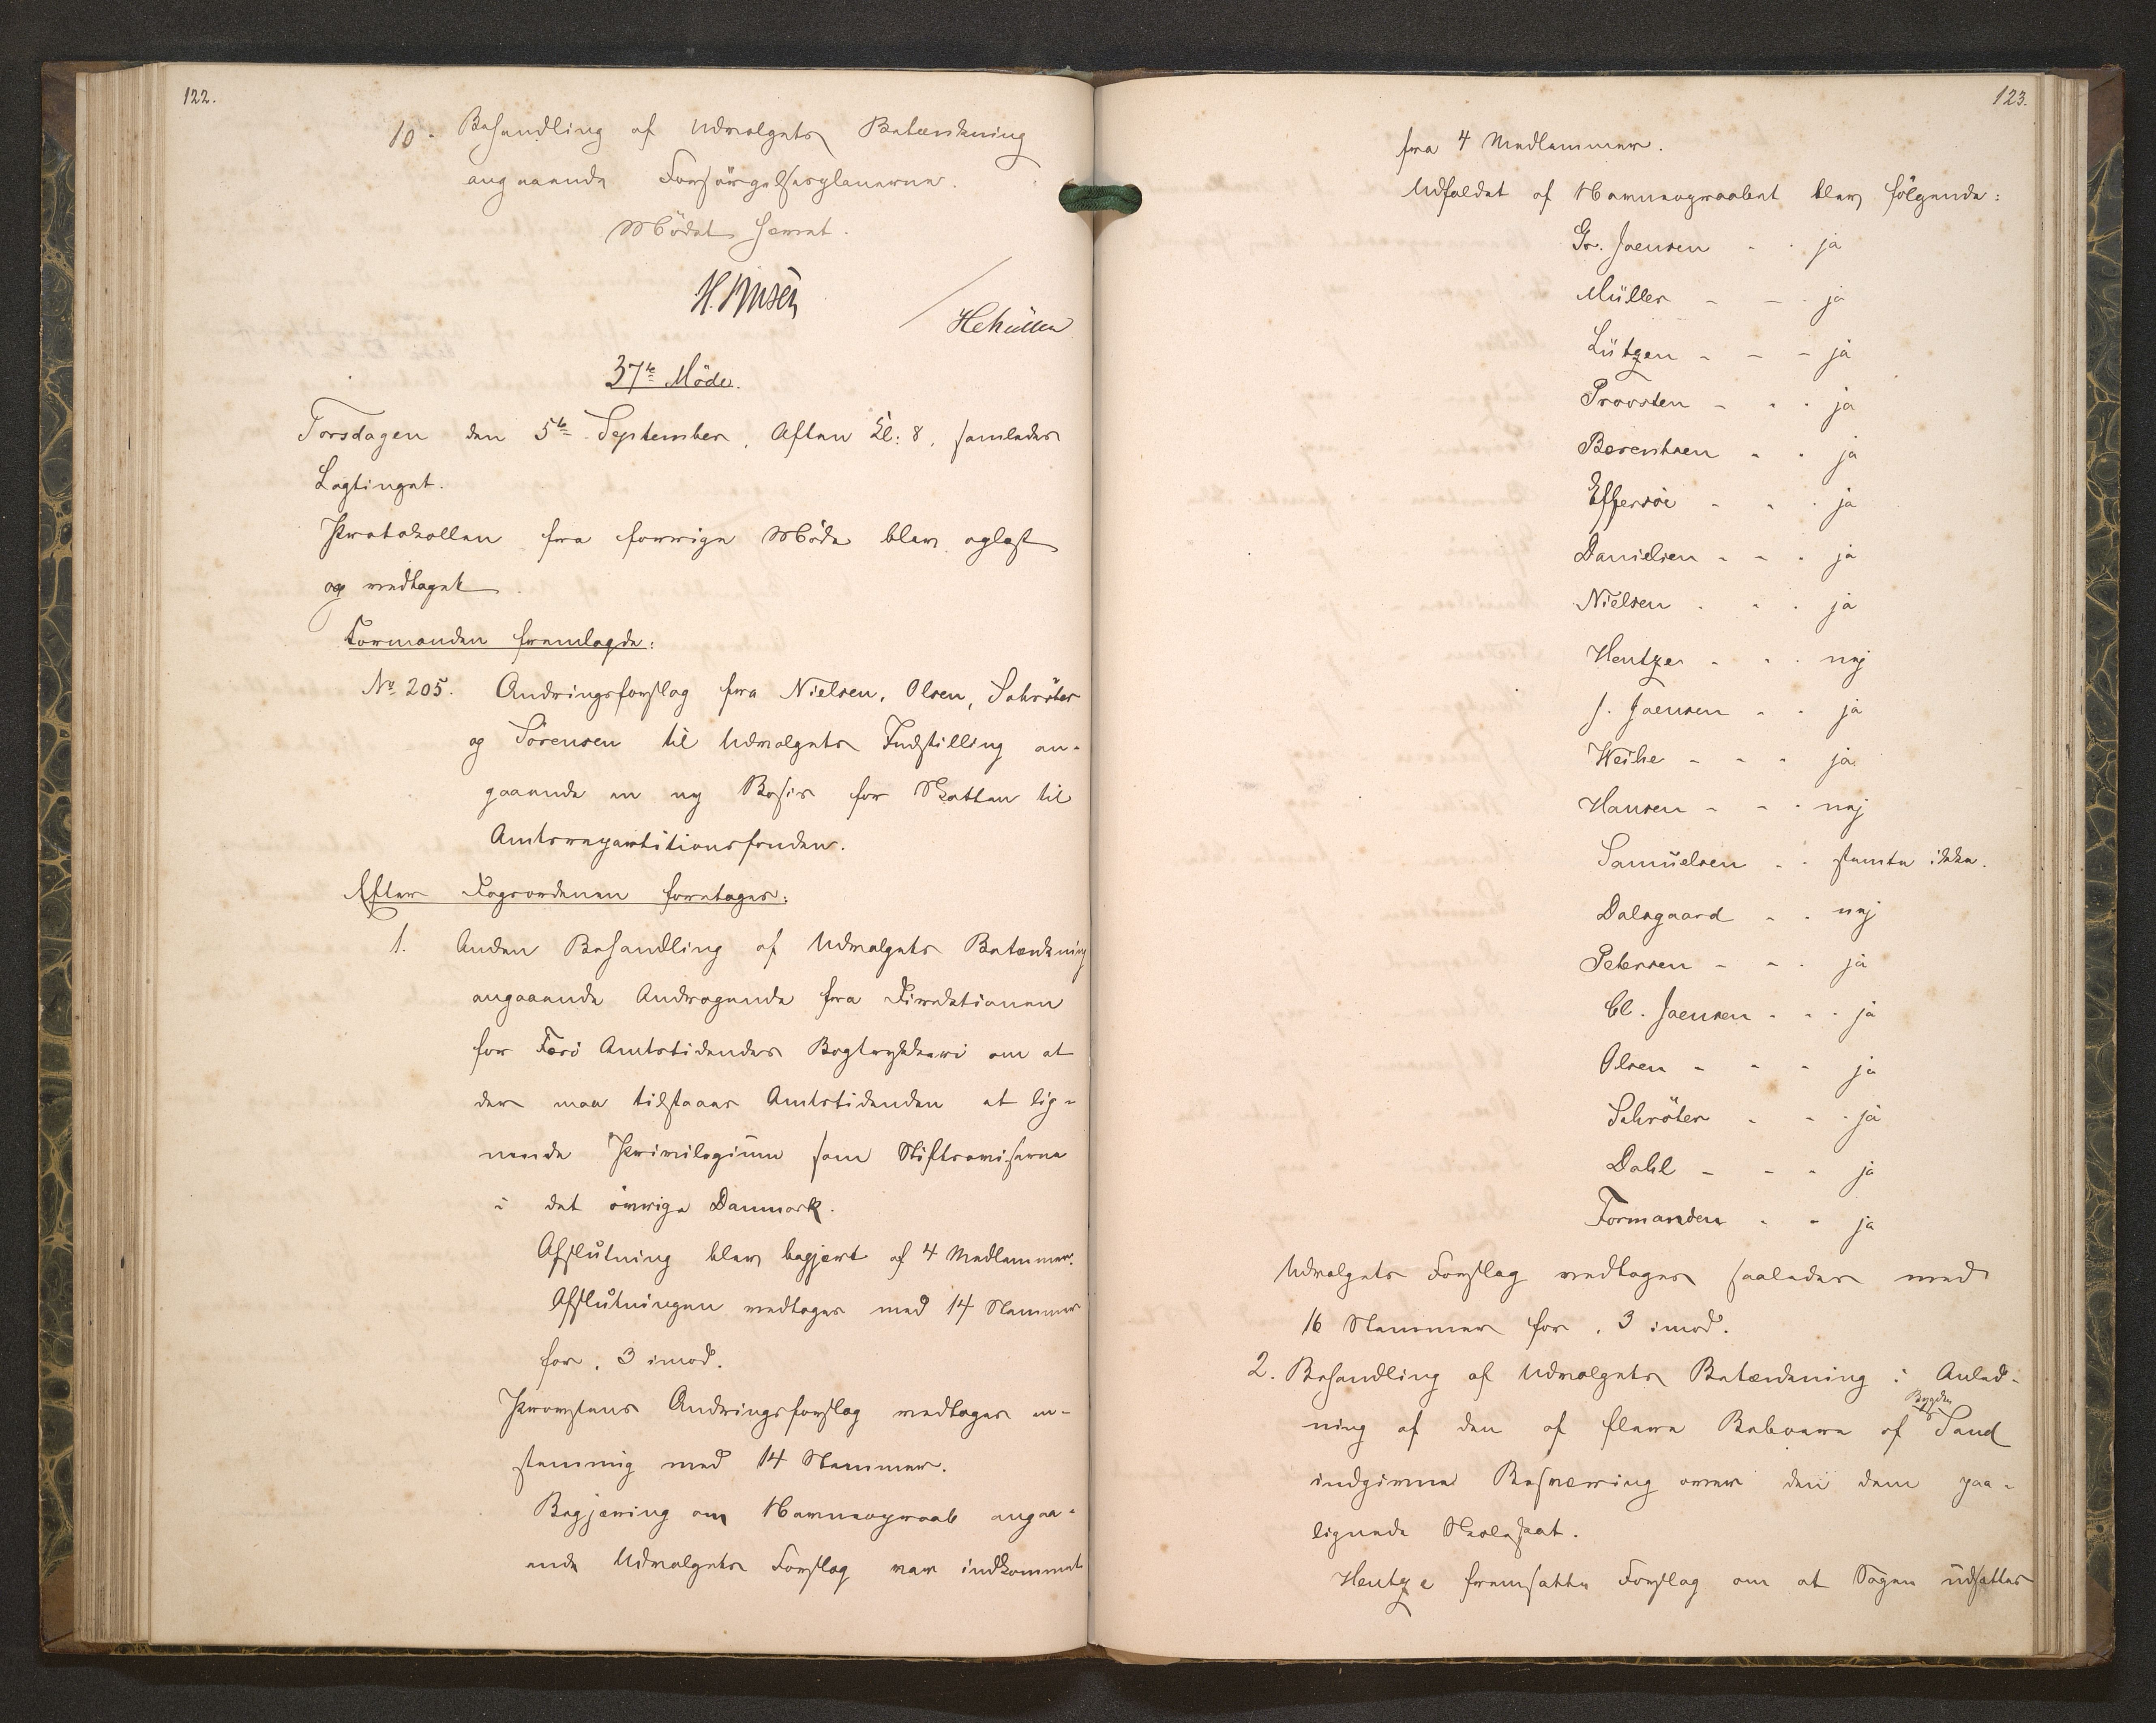 122.
10. Behandling af Udvalgets Betænkning
angaaende Forsörgelsesplanerne.
Mödet hævet.
H.
37te Möde.
Torsdagen den 5te September, Aften Kl: 8, samledes
Lagtinget.
Protokollen fra forrige Möde blev oplæst
og vedtaget.
Formanden fremlagde:
No 205. Ændringsforslag fra Nielsen, Olsen, Schröter
og Sörensen til Udvalgets Indstilling an-
gaaende en ny Basis for Skatten til
Amtsrepartitionsfonden.
Efter Dagsordenen foretoges:
1. Anden Behandling af Udvalgets Betænkning
angaaende Andragende fra Direktionen
for Færö Amtstidendes Bogtrykkeri om at
der maa tilstaaes Amtstidenden et lig-
nende Privilegium som Stiftsaviserne
i det övrige Danmark.
Afslutning blev begjært af 4 Medlemmer.
Afslutningen vedtoges med 14 Stemmer
for, 3 imod.
Provstens Ændringsforslag vedtoges en-
stemmig med 14 Stemmer.
Begjæring om Navneopraab angaa-
ende Udvalgets Forslag var indkommet
123.
fra 4 Medlemmer.
Udfaldet af Navneopraabet blev fölgende:
Gr. Joensen - - ja
Müller - - - ja
Lützen - - - ja
Provsten - - - ja
Berentsen - - ja
Effersöe - - - ja
Danielsen - - - ja
Nielsen - - - ja
Hentze - - - nej
J. Joensen - - ja
Weihe - - - ja
Hansen - - - nej
Samuelsen - - stemte ikke.
Dalsgaard - - nej
Petersen - - - ja
Cl. Joensen - - - ja
Olsen - - - ja
Schröter - - - ja
Dahl - - - ja
Formanden - - ja
Udvalgets Forslag vedtoges saaledes med
16 Stemmer for, 3 imod.
2. Behandling af Udvalgets Betænkning i Anled-
ning af den af flere Beboere af Bygden Sand
indgivne Besværing over den dem paa-
lignede Skoleskat.
Hentze fremsatte Forslag om at Sagen udsattes